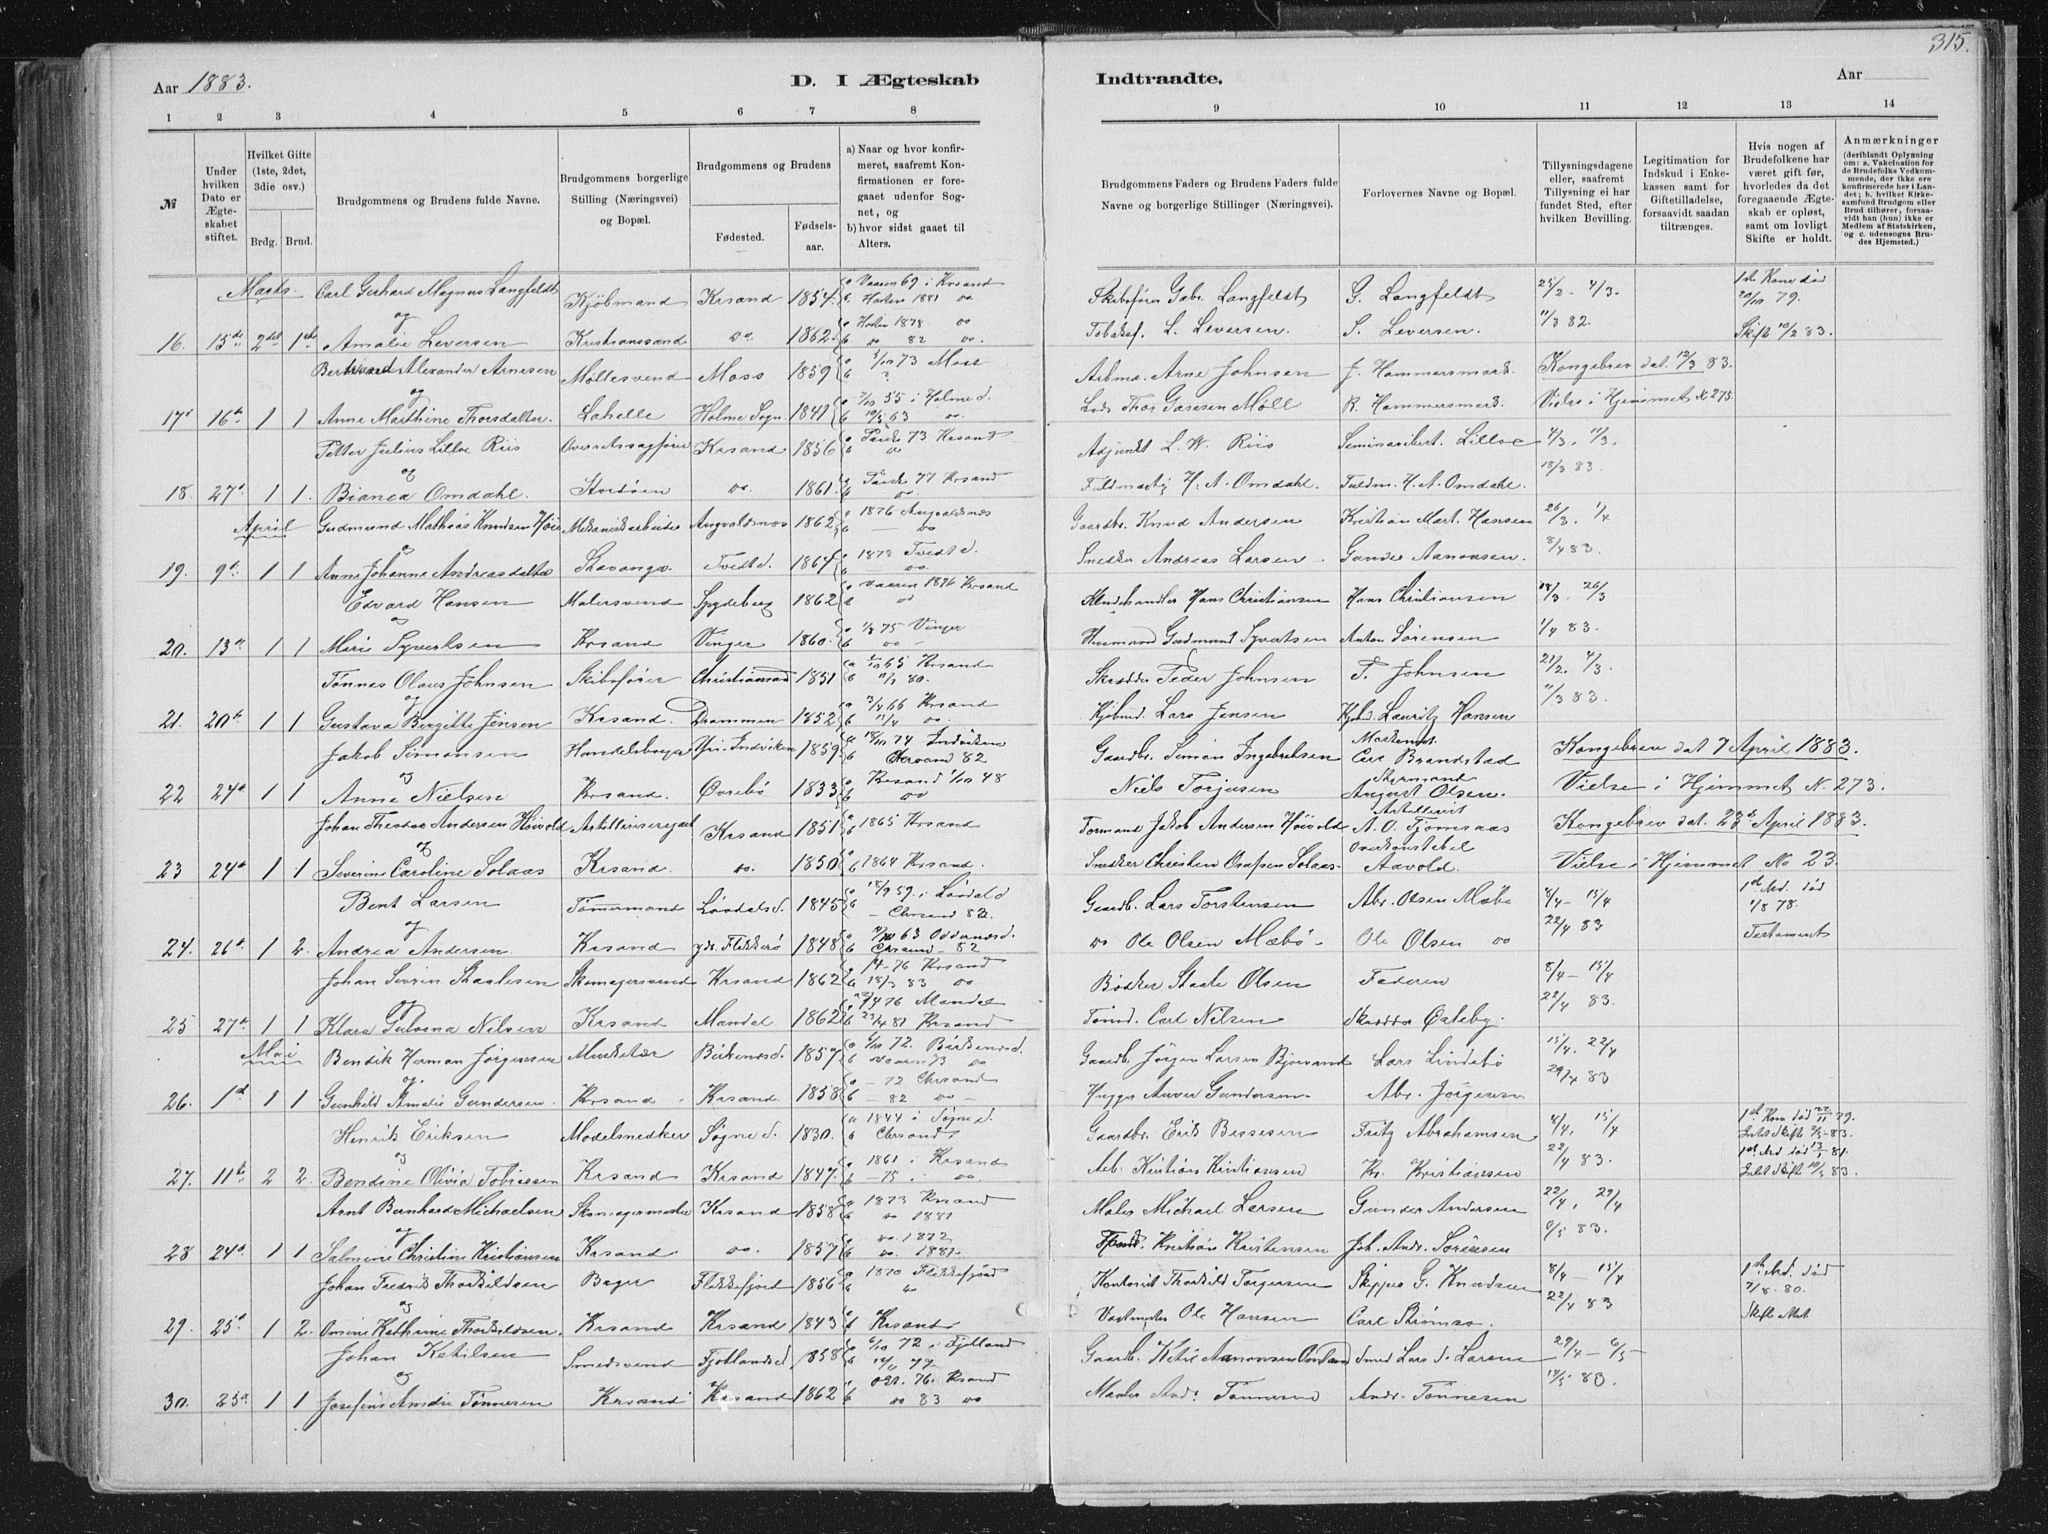 315.
Aar 1883. D. I Ægteskab Indtraadte. Aar
1 2 3 4 5 6 7 8 9 10 11 12 13 14
№
Under hvilken Dato er Ægteskabet stiftet.
Hvilket Gifte (1ste, 2det, 3die osv.)
Brdg. Brud.
Brudgommens og Brudens fulde Navne.
Brudgommens borgerlige Stilling (Næringsvei) og Bopæl.
Brudgommens og Brudens
Fødested. Fødselsaar.
a) Naar og hvor konfirmeret, saafremt Konfirmationen er foregaaet udenfor Sognet, og
b) hvor sidst gaaet til Alters.
Brudgommens Faders og Brudens Faders fulde Navne og borgerlige Stillinger (Næringsvei).
Forlovernes Navne og Bopæl.
Tillysningsdagene eller, saafremt Tillysning ei har fundet Sted, efter hvilken Bevilling.
Legitimation for Indskud i Enkekassen samt for Giftetilladelse, forsaavidt saadan tiltrænges.
Hvis nogen af Brudefolkene har været gift før, hvorledes da det foregaaende Ægteskab er opløst, samt om lovligt Skifte er holdt.
Anmærkninger
(deriblandt Oplysning om: a. Vakcination for de Brudefolks Vedkommende, der ikke ere konfirmerede her i Landet; b. hvilket Kirkesamfund Brudgom eller Brud tilhører, forsaavidt han (hun) ikke er Medlem af Statskirken, og c. udensogns Brudes Hjemsted.)
Marts. Carl Gerhard Magnus Langfeldt Kjøbmand Krsand 1854 a Vaaren 69 i Krsand b Høsten 1881 do Skibsfører Gabr. Langfeldt G. Langfeldt 25/2 - 4/3. 1ste Kone død 20/10 79.
og
16. 15de 2det 1ste Amalie Leversen Kristianssand do. 1862 a Høsten 1878 do b do 82 do. L. Leversen. S. Leversen. 11/3 82. Skifte 10/2 83.
Alexander Arnesen Møllesvend Moss 1859 a 5/10 73 Moss b ? Arbmd. Arne Johnsen J. Hammersmark. Kongebrev dat. 12/3 83.
og
17 16de 1 1 Anne Marthine Thorsdatter. Lahelle Holme Sogn 1841 a 7/10 55 i Holme d. b 10/5 63 do. Lods Thor Møll R. Hammersmark. Vielse i Hjemmet № 275.
Petter Julius Lilloe Riis Overretssagfører Krsand 1856 a 73 Krsand b do Adjunkt L. W. Riis Seminaribest. Lilloe 4/3. 11/3.
og
18. 27de 1 1. Bianca Omdahl. do. 1861 a 77 Krsand b do. Fuldmægtig H. A. Omdahl. Fuldm. H. A. Omdahl. 18/3 83.
April Gudmund Mathias Knudsen Høie Augvaldsnes 1862 a 1876 Augvaldsnes b — do Gaardbr. Knud Andersen Kristian Mart. Hansen 26/3. 1/4
og
19. 9de 1 1 Anne Johanne Andreasdatter Stavanger Tvedt d. 1864 a 1878 Tvedt d. b — do. Snedker Andreas Larsen Gunder Aanonsen. 8/4 83.
Edvard Hansen Malersvend Spydeberg 1862 a Vaaren 1876 Krsand b do Hans Christiansen Hans Christiansen 18/3. 26/3
og
20. 13de 1 1 Marie Syvertsen Krsand Vinger 1860. a 1/8 75 Vinger b do — Husmand Gudmund Syvertsen Anton Sørensen 1/4 83.
Tønnes Olaus Johnsen Skibsfører Christianssand 1851 a 1/10 65 Krsand b 11/1 80. Skrædder Peder Johnsen T. Johnsen 21/2. 4/3.
og
21. 20de 1 1 Gustava Birgitte Jensen Krsand. Drammen 1852 a 13/4 66 Krsand b 11/4 do. Kjøbmd. Lars Jensen Kjøbmd. Lauritz Hansen 11/3 83.
Jakob Simonsen Handelsborger Indviken 1859 a 18/10 74 Indviken b Chrsand 82 Gaardbr. Simon Ingebretsen Carl Brandstad Kongebrev dat 7 April 1883.
og
22 24de 1 1 Anne Nielsen Krsand. Øvrebø 1833 a Krsand 1/10 48 b do Niels Torjusen Styrmand August Olsen. Vielse i Hjemmet N. 273.
Johan Theodor Andersen Høivold Krsand 1851 a 1865 Krsand b Formand Jakob Andersen Høivold A. O. Tjomsaas Kongebrev dat. 23de April 1883.
og
23 24de 1 1 Severine Caroline Solaas Krsand. do. 1850 a b 1864 Krsand. Snedker Christen Olafsen Solaas Overkonstabel Aavold. Vielse i Hjemmet No 23.
Bent Larsen Tømmermand Løvdals d. 1845 a 18/9 59. i Løvdal d b — Chrsand 82. Gaardb. Lars Torstensen Abr. Olsen Mæbø 8/4 — 15/4 1ste Md. død 1/8 78.
og
24. 26de 1 2. Andrea Andersen. Krsand Flekkerø 1848 a 63 Oddernæs d. b Chrsand 82 do Ole Olsen Mæbø — Ole Olsen do 22/4 83 Testament
Johan Severin Staalesen Skomagersvend Krsand 1862 a 14 - 76 Krsand b 18/3 83 do Bødker Staale Olsen Faderen 8/4 — 15/4
og
25 27de 1 1 Klara Gulovna Nilsen Krsand Mandal 1862 a 22/4 76 Mandal b 23/4 81 Krsand Tømd. Carl Nilsen Skrædder Østeby. 22/4 83.
Mai Bendik Herman Jørgensen Musketær Birkenæs d. 1857 a 6/10 72. Birkenæs d. b Vaaren 73 do Gaardb. Jørgen Larsen Lars Lindebø 15/4. 22/4
og
26. 1ste 1 1 Gunhild Amalie Gundersen. Krsand. Krsand. 1858 a — 72 Chrsand b — 82 do — Gundersen Abr. Jørgensen 29/4 83
Henrik Eriksen Modelsnedker Søgne d. 1830. a 1844 i Søgne d. b Chrsand Gaardbr. Erik Bessesen Fritz Abrahamsen 8/4, 15/4 1ste Kone død 22/11 79. Intet Skifte 7/5 - 83.
og
27. 11te 2 2. Bendine Olivia Tobiesen Krsand Krsand 1847. a 1861 i Krsand b — 75. do. Arb. Kristian Kristiansen Kr. Kristiansen 22/4 83. 1ste Md død 13/1 81. Intet Skifte 10/5 83.
Arnt Bernhard Michaelsen Skomagermester Krsand 1858 a 1873 Krsand b do 1881 Maler Michael Larsen Gunder Andersen 22/4, 29/4
og
28 24de 1 1 Salmine Christine Kristiansen Krsand do. 1857 a do. 1872 b do. 1881. Kristian Kristensen Joh. Andr. Sørensen 6/5 83.
Johan Fredrik Thorkildsen Bager Flekkefjord 1856 a 1870 Flekkefjord b do Kontorist Thorkild Torgersen Skipper G. Knudsen 8/4 — 15/4 1ste Md. død 7/8 - 80.
og
29. 25de 1 2 Omine Kathrine Thorkildsen. Krsand Krsand 1843 a b Krsand Ole Hansen Carl Strømsø. 22/4 83 Skifte Att.
Johan Ketilsen Smedsvend Fjotlands d. 1858 a 6/10 72 i Fjotland b 77 Gaardb. Ketil Aanonsen Omland Smed Lars d. Larsen 29/4 — 6/5
og
30. 25de 1 1 Josefine Amalie Tønnesen Krsand Krsand 1862 a Okt. 76. Krsand b do 83 do Andr. Tønnesen Andr. Tønnesen 14/5 83.